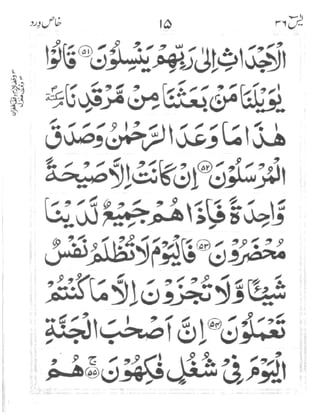 یٰسٓ ۳۶ ۱۵ خاص ورد
الْاَجْدَاثِ اِلٰى رَبِّهِمْ يَنْسِلُوْنَ ﴿۵۱﴾ قَالُوْا
يٰوَيْلَنَا مَنْۢ بَعَثَنَا مِنْ مَّرْقَدِنَا ۘ سكتة
هٰذَا مَا وَعَدَ الرَّحْمٰنُ وَصَدَقَ
الْمُرْسَلُوْنَ ﴿۵۲﴾ اِنْ كَانَتْ اِلَّا صَيْحَةً
وَّاحِدَةً فَاِذَا هُمْ جَمِيْعٌ لَّدَيْنَا
مُحْضَرُوْنَ ﴿۵۳﴾ فَالْيَوْمَ لَا تُظْلَمُ نَفْسٌ
شَيْـًٔا وَّلَا تُجْزَوْنَ اِلَّا مَا كُنْتُمْ
تَعْمَلُوْنَ ﴿۵۴﴾ اِنَّ اَصْحٰبَ الْجَنَّةِ
الْيَوْمَ فِيْ شُغُلٍ فٰكِهُوْنَ ﴿۵۵﴾ ۚ هُمْ